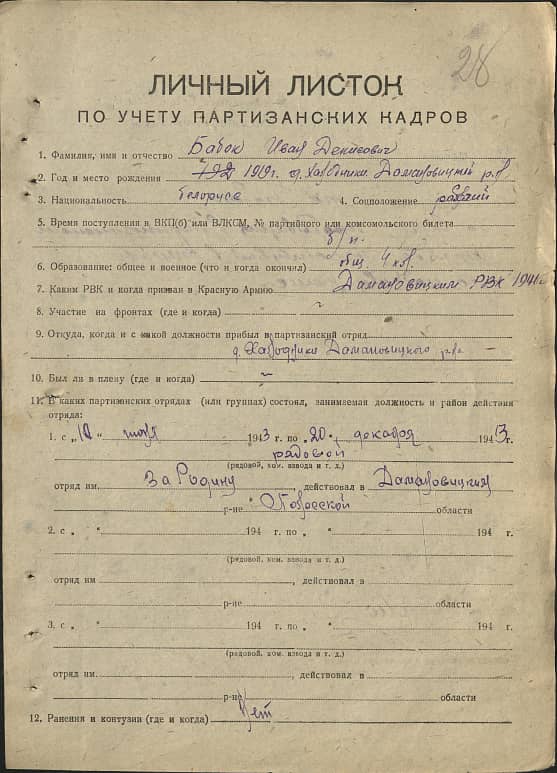 28
ЛИЧНЫЙ ЛИСТОК
ПО УЧЕТУ ПАРТИЗАНСКИХ КАДРОВ
1. Фамилия, имя и отчество Бабок Иван Денисович
2. Год и место рождения 1919 г. д. Домановицкий р-н
3. Национальность белорус 4. Соцположение рабочий
5. Время поступления в ВКП(б) или ВЛКСМ, № партийного или комсомольского билета
б/п.
6. Образование: общее и военное (что и когда окончил) общ. 4 кл.
7. Каким РВК и когда призван в Красную Армию Домановицким РВК 1941 г.
8. Участие на фронтах (где и когда) ~
9. Откуда, когда и с какой должности прибыл в партизанский отряд
д. Домановицкого р-на
10. Был ли в плену (где и когда) ~
11. В каких партизанских отрядах (или группах) состоял, занимаемая должность и район действия
отряда:
1. с „10 1943 г. по „20 „ декабря 1943 г.
рядовой
(рядовой, ком. взвода и т. д.)
отряд им. За Родину, действовал в Домановицкий
р-не Полесской области
2. с „ “ 194 г. по „ “ 194 г.
(рядовой, ком. взвода и т. д.)
отряд им , действовал в
р-не области
3. с „ “ 194 г. по „ “ 194 г.
(рядовой, ком. взвода и т. д.)
отряд им. , действовал в
р-не области
12. Ранения и контузии (где и когда) Нет